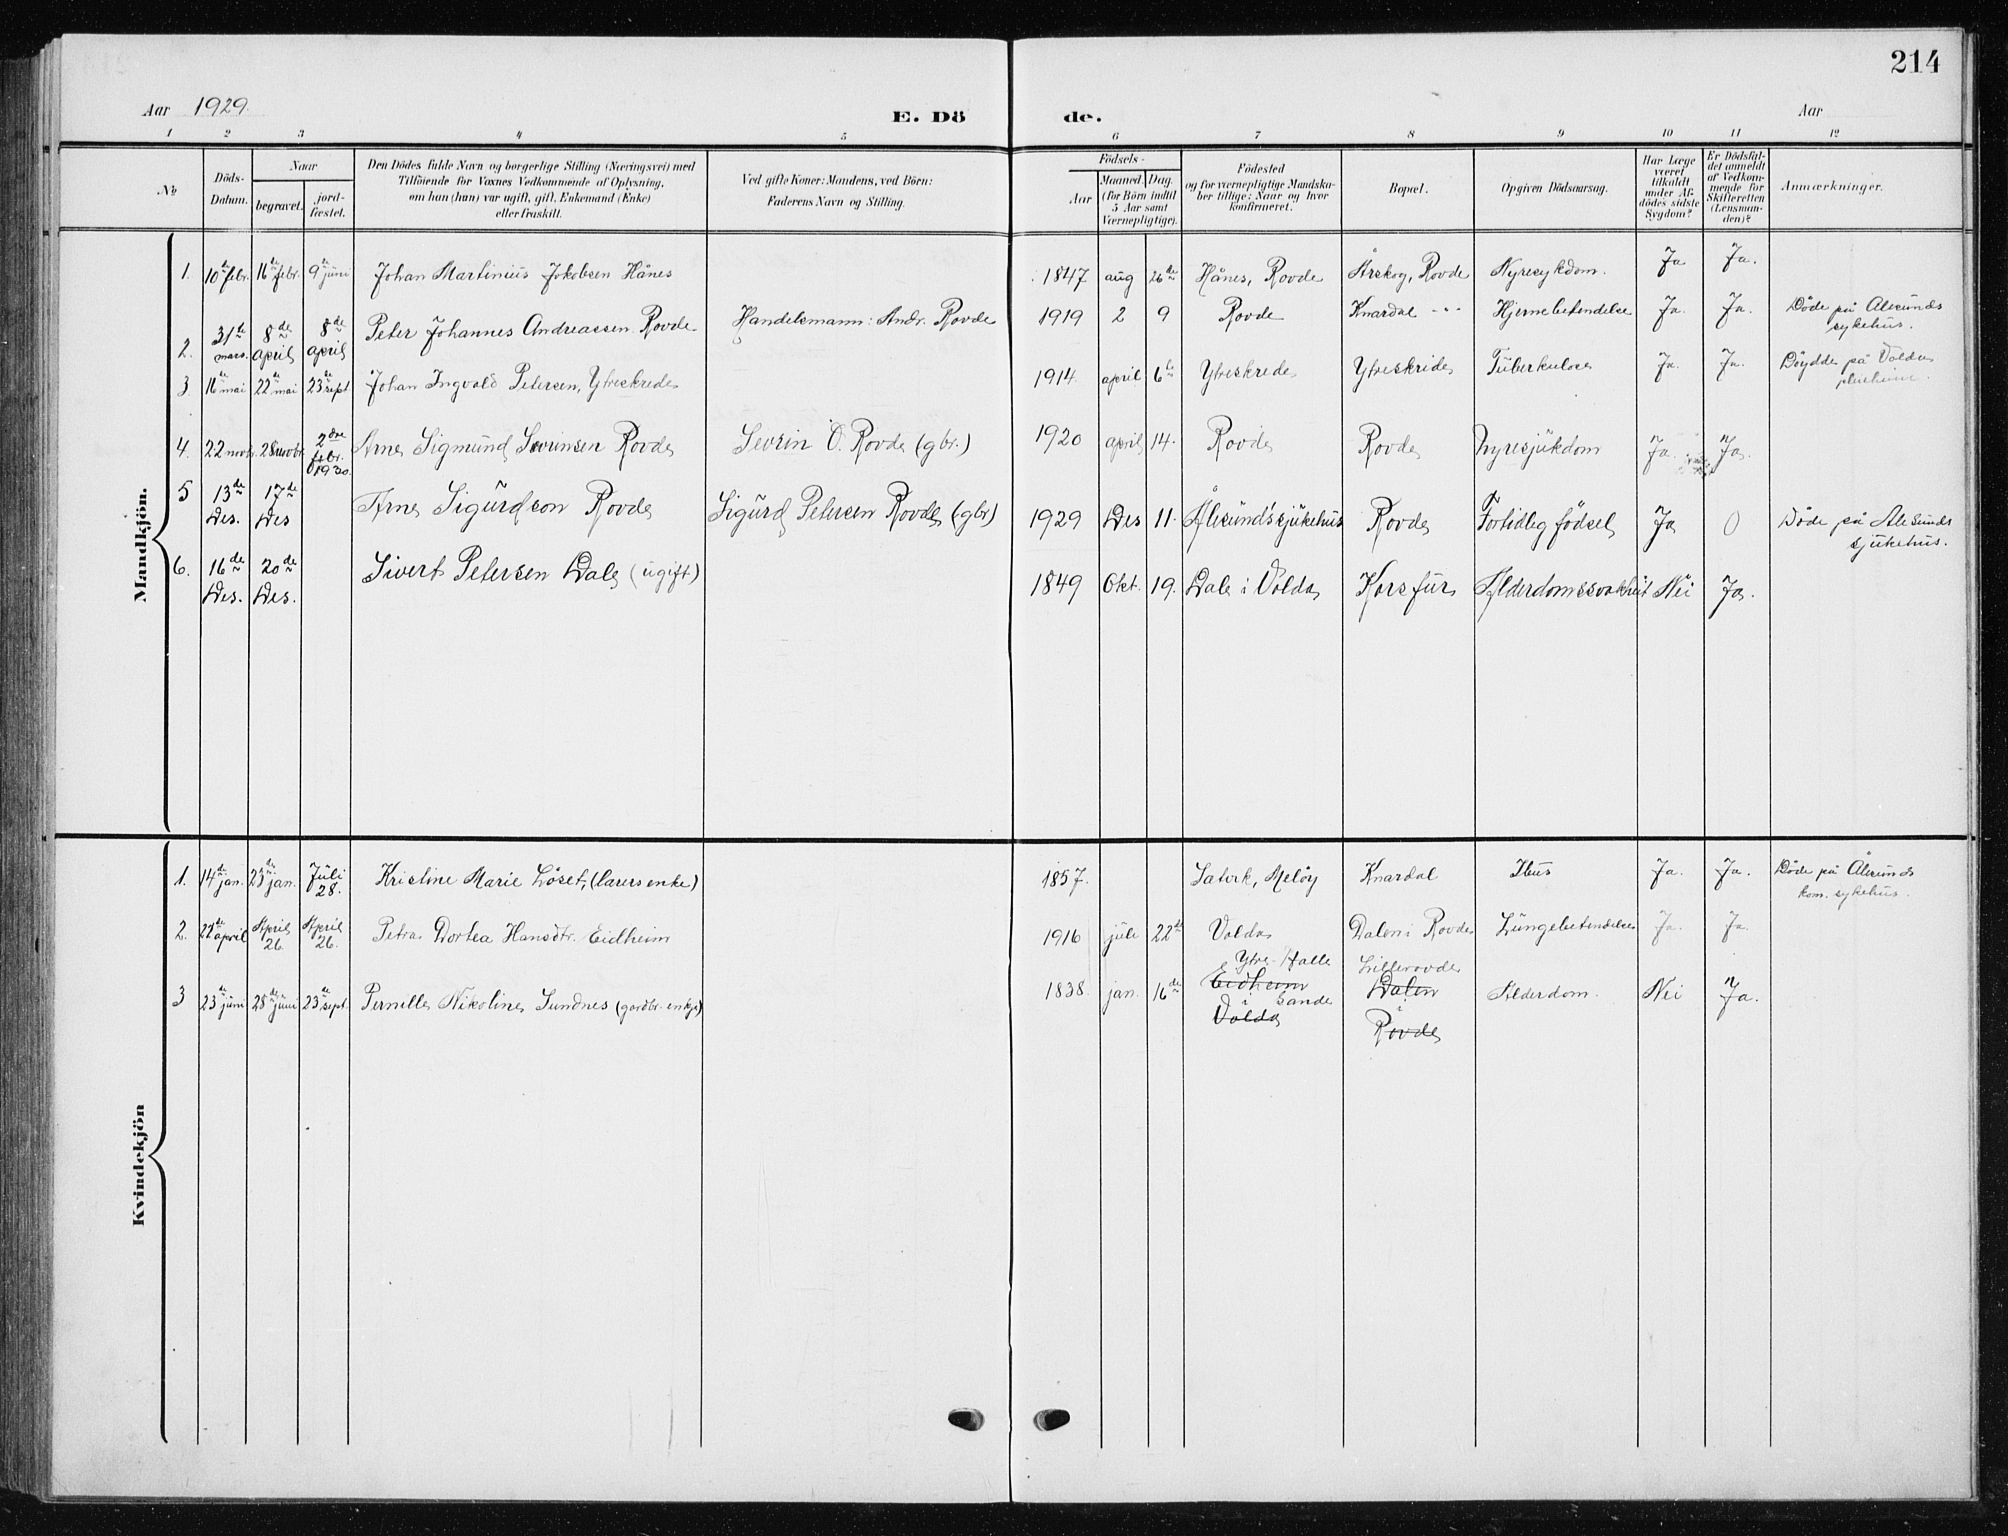 214
Aar 1929.
E. Dö de.
Aar
1 2 3 4 5 6 7 8 9 10 11 12
No
Döds-Datum.
Naar
begravet.
jord-fæstet.
Den Dödes fulde Navn og borgerlige Stilling (Næringsvei) med
Tilföiende for Voxnes Vedkommende af Oplysning,
om han (hun) var ugift, gift, Enkemand (Enke)
eller fraskilt.
Ved gifte Koner: Mandens, ved Börn:
Faderens Navn og Stilling.
Födsels-
Aar
Maaned. Dag.
(for Börn indtil
5 Aar samt
Værnepligtige).
Födested
og for værnepligtige Mandska-
ber tillige: Naar og hvor
konfirmeret.
Bopæl.
Opgiven Dödsaarsag.
Har Læge
været
tilkaldt
under Af-
dödes sidste
Sygdom?
Er Dödsfal-
det anmeldt
af Vedkom-
mende for
Skifteretten
(Lensman-
den)?
Anmærkninger.
Mandkjön.
1. 10de febr. 16de febr. 9de juni Johan Martinius Jakobsen Hånes 1847 aug 26de Hånes, Rovde Årskog, Rovde Nyresykdom. Ja Ja.
2. 31te mars. 8de april 8de april Peter Johannes Andreassen Rovde Handelsmann: Andr. Rovde 1919 2 9 Rovde Knardal -"- Hjernebetendelse Ja. Ja. Døde på Ålesunds
sykehus.
3 16de mai 22de mai 23de sept Johan Ingvald Petersen, Ytreskrede 1914 april 6te Ytreskrede Ytreskride Tuberkulose Ja. Ja. Døydde på Volda
4. 22 novbr. 28 novbr. 2dre febr. 1930. Arne Sigmund Severinsen Rovde Severin O. Rovde (gbr.) 1920 april 14. Rovde Rovde Nyresjukdom Ja. Ja.
5 13de Des. 17de Des Arne Sigurdson Rovde Sigurd Petersen Rovde (gbr) 1929 Des 11. Ålesunds sjukehus Rovde Fortidleg fødsel Ja 0 Døde på Alesunds
sjukehus.
6. 16de Des. 20de Des. Sivert Petersen Dale (ugift) 1849 Okt. 19. Dale i Volda Korsfur Alderdomssvakheit Nei Ja.
Kvindekjön
1. 14de jan. 23de jan. Juli 28. Kristine Marie Løset, (lærers enke) 1857. Meløy Knardal Ja. Ja. Døde på Ålesunds
kom. sykehus.
2. 22de april April 26. April 26. Petra Dortea Hansdtr. Eidheim 1916 juli 22de Volda Dalen i Rovde Lungebetendelse Ja. Ja.
3 23de juni 28de juni 23de sept. Pernille Nikoline Sundnes (gardbr. enkje) 1838. jan. 16de Eidheim i Volda Ytre Halle Sande Lillerovde Dalen i Rovde Alderdom. Nei Ja.